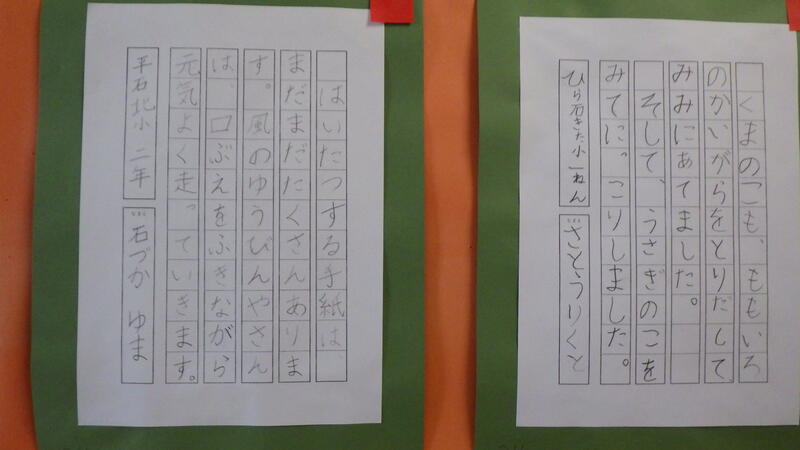 くまのこも、ももいろ
のかいがらをとりだして、
みみにあてました。
そして、うさぎのこを
みてにっこりしました。
ひら石きた小一ねん
さとうりくと
はいたつする手紙は、
まだまだたくさんありま
す。風のゆうびんやさん
は、口ぶえをふきながら
元気よく走っていきます。
平石北小 二年
石づか ゆま